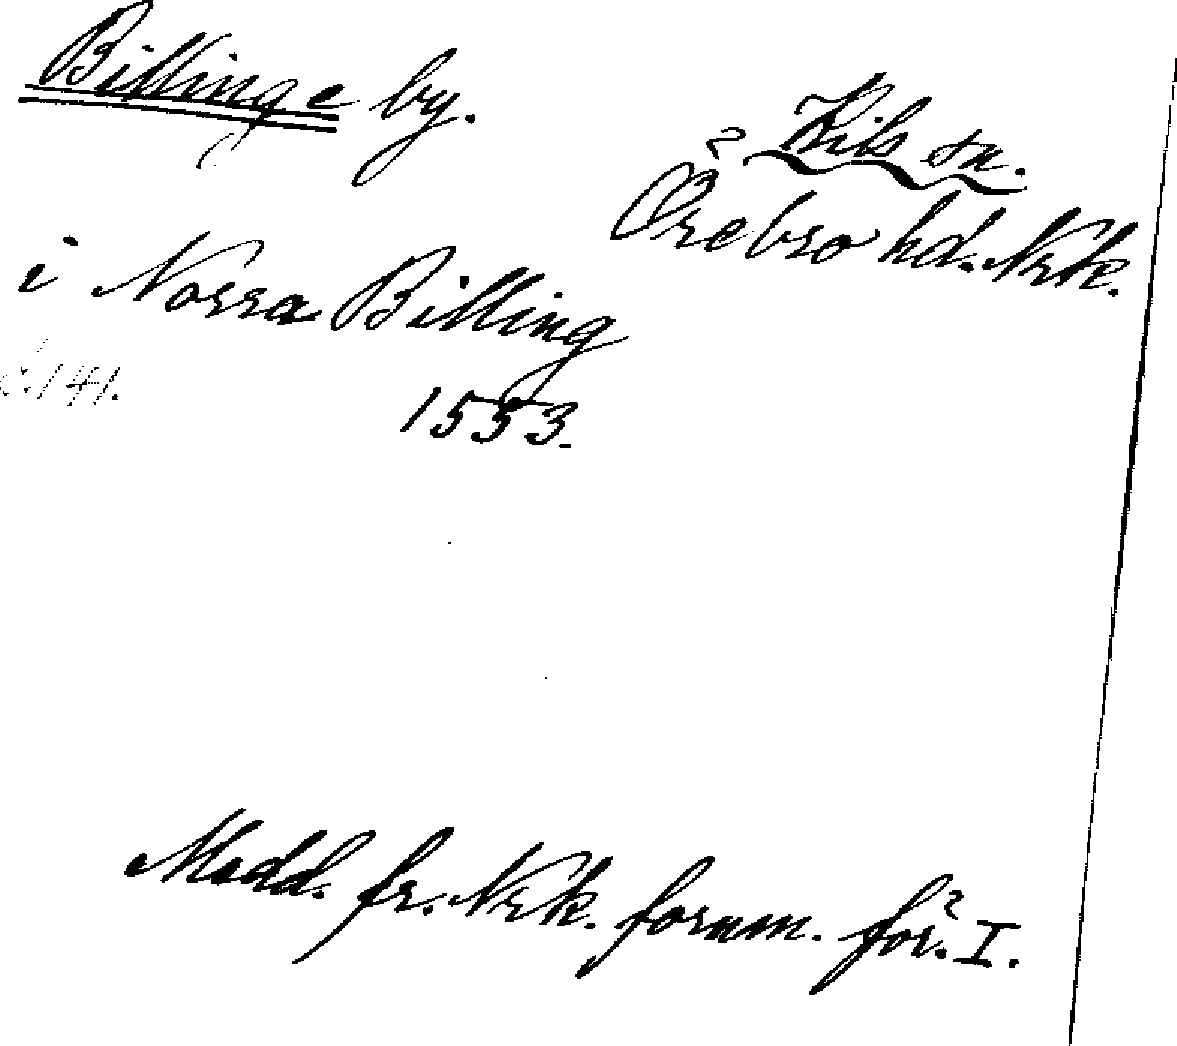 Billinge by.
Kils sn.
Örebro hd. Nrk.
i Norra Billing
141.
1553.
Medd. fr. Nrk. fornm. för. I.